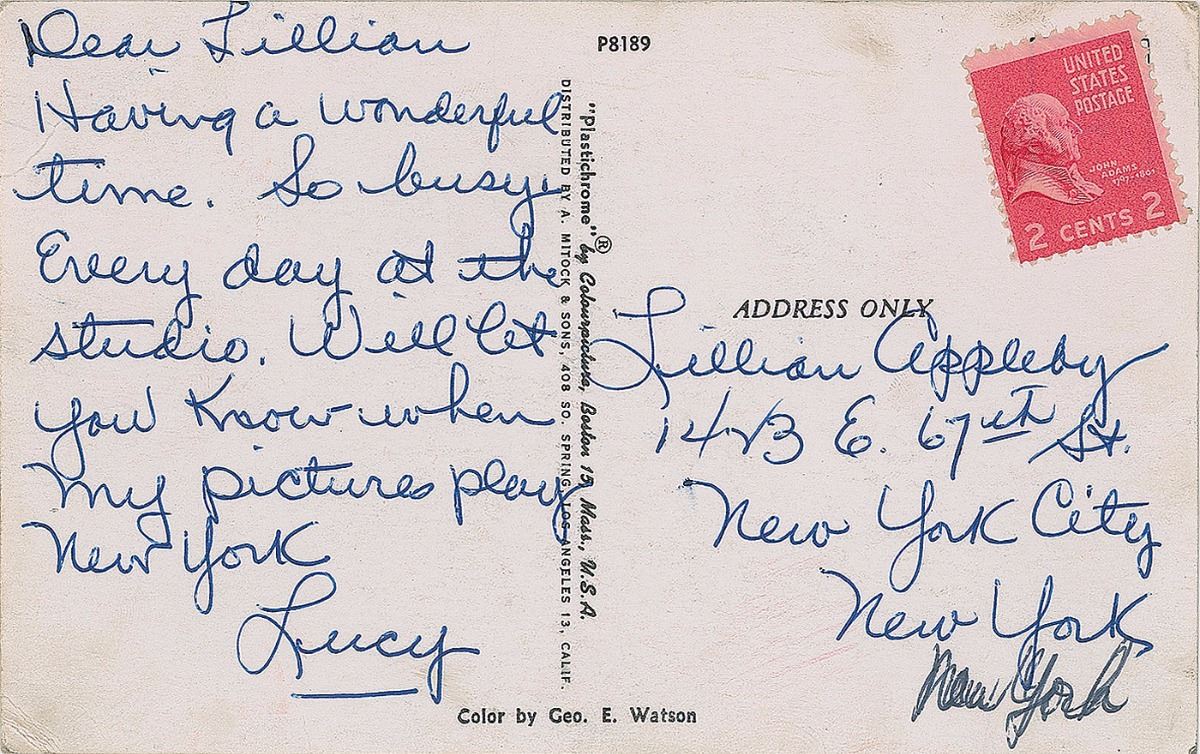 Dear Lillian
Having a wonderful
time. So busy
Every day at the
studio. Will let
you know when
my pictures play
New York
Lucy
P8189
"Plastichrome"® by Colourpicture, Boston 15, Mass., U.S.A.
DISTRIBUTED BY A. MITOCK & SONS, 408 SO. SPRING, LOS ANGELES 13, CALIF.
UNITED
STATES
POSTAGE
JOHN
ADAMS
1797-1801
2 CENTS 2
ADDRESS ONLY
Lillian Appleby
E. 67th St.
New York City
New York
New York
Color by Geo. E. Watson